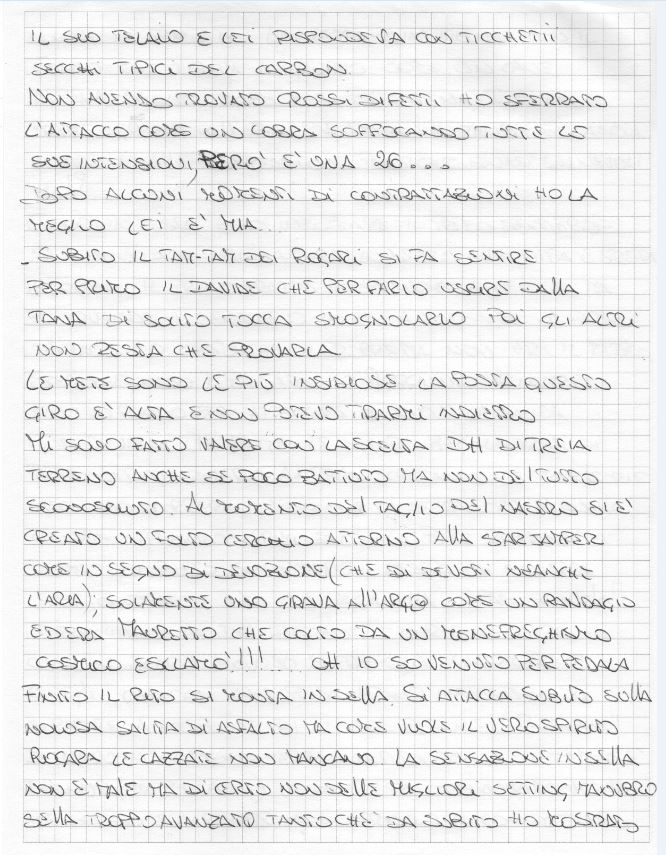 IL SUO TELAIO E LEI RISPONDEVA CON TICCHETII
SECCHI TIPICI DEL CARBON
NON AVENDO TROVATO GROSSI DIFETTI HO SFERRATO
L'ATTACCO COME UN COBRA SOFFOCANDO TUTTE LE
SUE INTENSIONI, PERO' E' UNA 26...
DOPO ALCUNI MOMENTI DI CONTRATTAZIONI HO LA
MEGLIO LEI E' MIA...
- SUBITO IL TAM-TAM DEI ROGARI SI FA SENTIRE
PER PRIMO IL DAVIDE CHE PER FARLO USCIRE DALLA
TANA DI SOLITO TOCCA SMOGNOLARLO POI GLI ALTRI
NON RESTA CHE PROVARLA
LE METE SONO LE PIÙ INSIDIOSE LA POSTA QUESTO
GIRO E' ALTA E NON POTEVO TIRARMI INDIETRO
MI SONO FATTO VALERE CON LA SCELTA DH DI TREIA
TERRENO ANCHE SE POCO BATTUTO MA NON DEL TUTTO
SCONOSCIUTO. AL MOMENTO DEL TAGLIO DEL NASTRO SI E'
CREATO UN FOLTO CERCHIO ATTORNO ALLA STARJAMPER
COME IN SEGNO DI DEVOZIONE (CHE DI DEVOTI NEANCHE
L'ARIA); SOLAMENTE UNO GIRAVA ALL'ARGO COME UN RANDAGIO
ED ERA MAURETTO CHE COLTO DA UN MENEFREGHISMO
COSMICO ESCLAMO' !!! .... OH IO SO VENUTO PER PEDALA
FINITO IL RITO SI MONTA IN SELLA. SI ATTACCA SUBITO SULLA
NOIOSA SALITA DI ASFALTO MA COME VUOLE IL VERO SPIRITO
ROGARA LE CAZZATE NON MANCANO. LA SENSAZIONE IN SELLA
NON E' MALE MA DI CERTO NON DELLE MIGLIORI SETTING MANUBRO
SELLA TROPPO AVANZATO TANTO CHE' DA SUBITO HO MOSTRATO